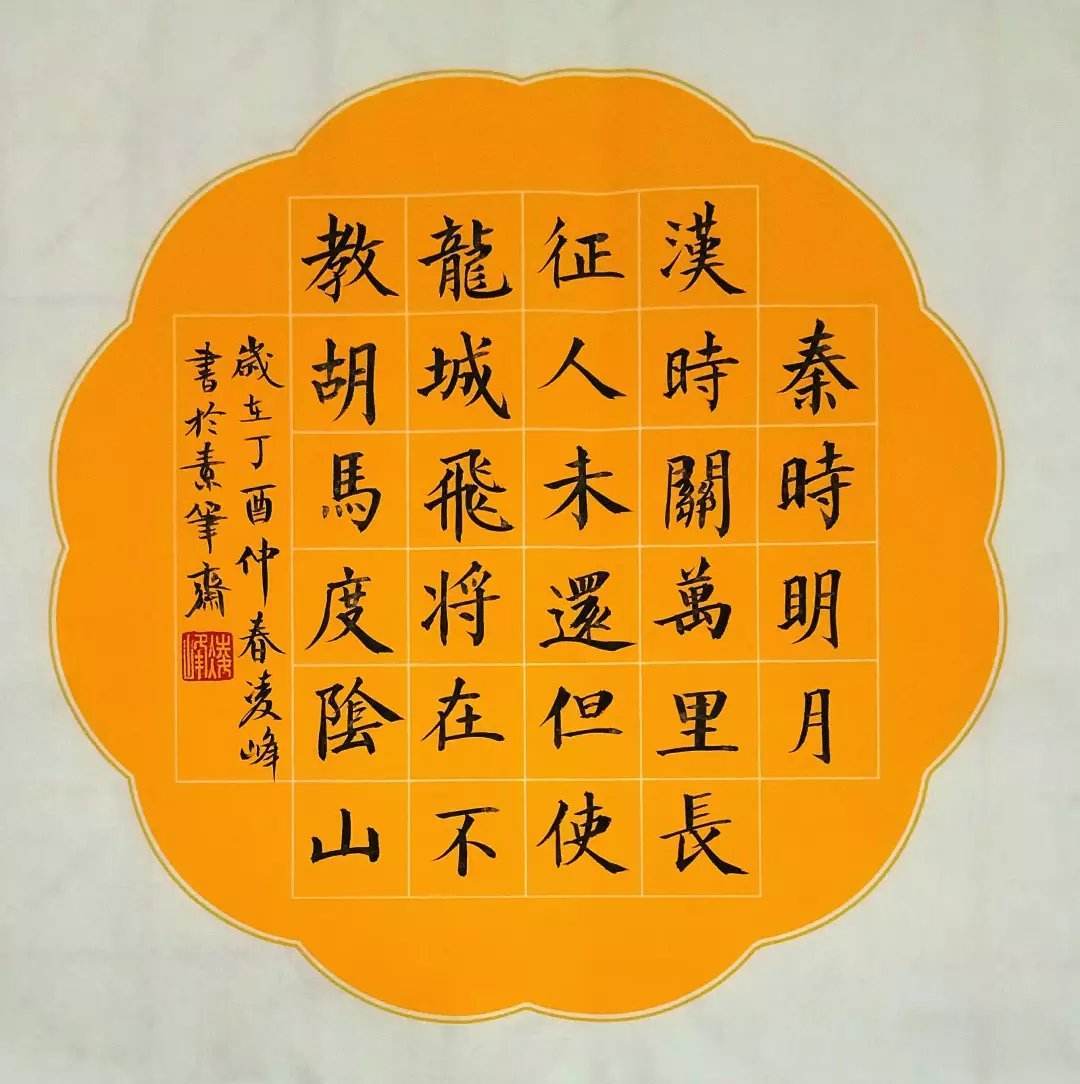 秦時明月
漢時關萬里長
征人未還但使
龍城飛将在不
教胡馬度陰山
歲在丁酉仲春凌峰
書於素筆齋
凌峰